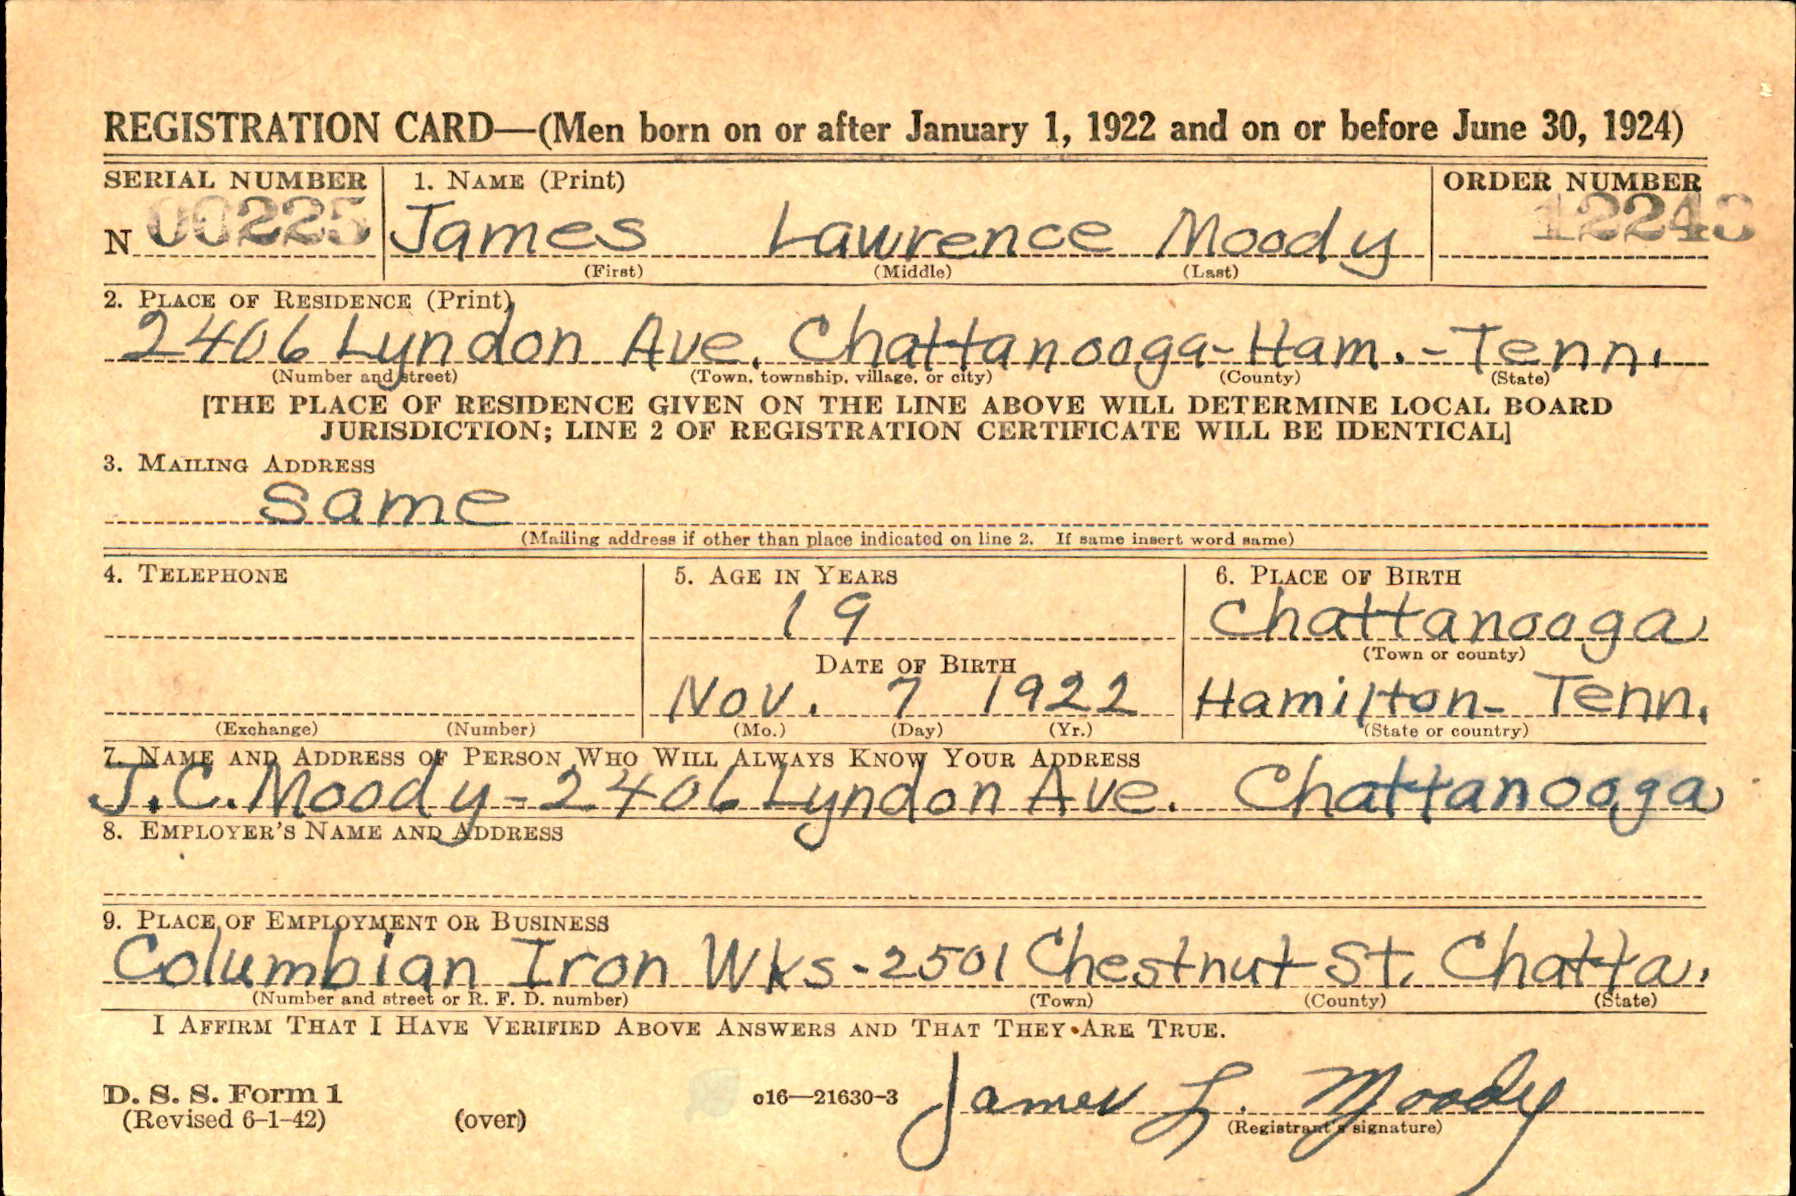 REGISTRATION CARD—(Men born on or after January 1, 1922 and on or before June 30, 1924)
SERIAL NUMBER 1. NAME (Print) ORDER NUMBER
N 00225 James Lawrence Moody 12243
(First) (Middle) (Last)
2. PLACE OF RESIDENCE (Print)
2406 Lyndon Ave. Chattanooga-Ham.-Tenn.
(Number and street) (Town, township, village, or city) (County) (State)
[THE PLACE OF RESIDENCE GIVEN ON THE LINE ABOVE WILL DETERMINE LOCAL BOARD
JURISDICTION; LINE 2 OF REGISTRATION CERTIFICATE WILL BE IDENTICAL]
3. MAILING ADDRESS
same
(Mailing address if other than place indicated on line 2. If same insert word same)
4. TELEPHONE 5. AGE IN YEARS 6. PLACE OF BIRTH
19 Chattanooga
(Town or county)
DATE OF BIRTH
Nov. 7 1922 Hamilton- Tenn.
(Exchange) (Number) (Mo.) (Day) (Yr.) (State or country)
7. NAME AND ADDRESS OF PERSON WHO WILL ALWAYS KNOW YOUR ADDRESS
J.C. Moody-2406 Lyndon Ave. Chattanooga
8. EMPLOYER'S NAME AND ADDRESS
9. PLACE OF EMPLOYMENT OR BUSINESS
Columbian Iron Wks-2501 Chestnut St. Chatta.
(Number and street or R. F. D. number) (Town) (County) (State)
I AFFIRM THAT I HAVE VERIFIED ABOVE ANSWERS AND THAT THEY ARE TRUE.
D. S. S. Form 1
(Revised 6-1-42) (over) c16—21630-3 James L. Moody
(Registrant's signature)